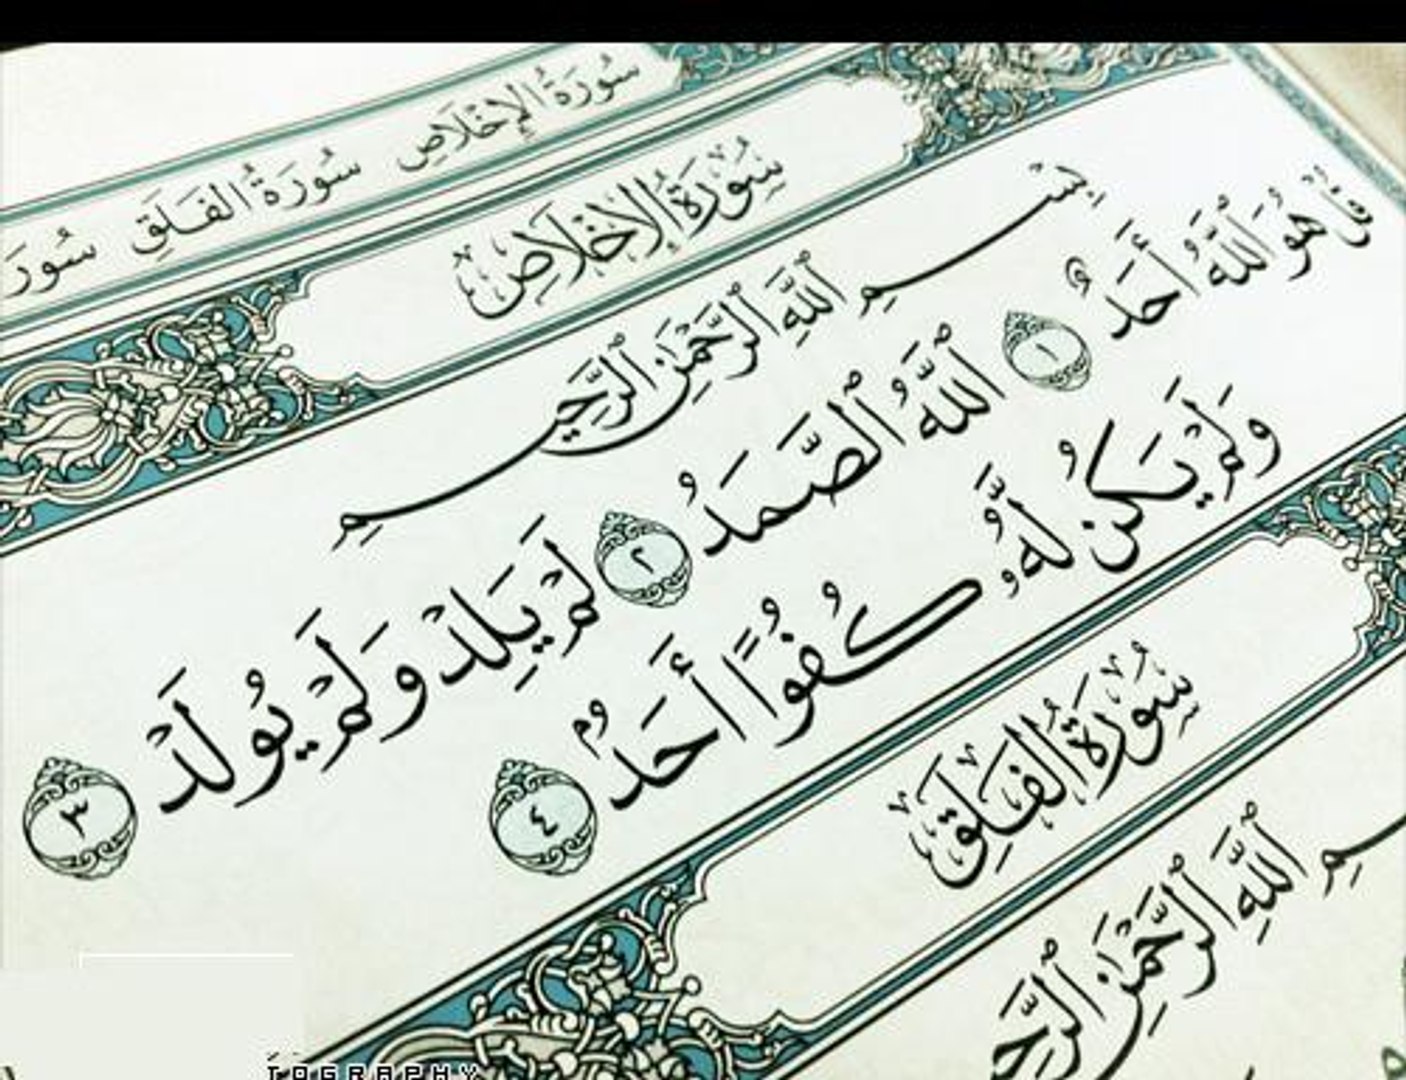 سُورَةُ الإِخْلَاصِ سُورَةُ الفَلَقِ
سُورَةُ الإِخْلَاصِ
بِسْمِ ٱللَّهِ ٱلرَّحْمَٰنِ ٱلرَّحِيمِ
قُلْ هُوَ ٱللَّهُ أَحَدٌ ١ ٱللَّهُ ٱلصَّمَدُ ٢ لَمْ يَلِدْ وَلَمْ يُولَدْ ٣
وَلَمْ يَكُن لَّهُۥ كُفُوًا أَحَدٌۢ ٤
سُورَةُ الفَلَقِ
ٱللَّهِ ٱلرَّحْمَٰنِ
TOGRAPHY